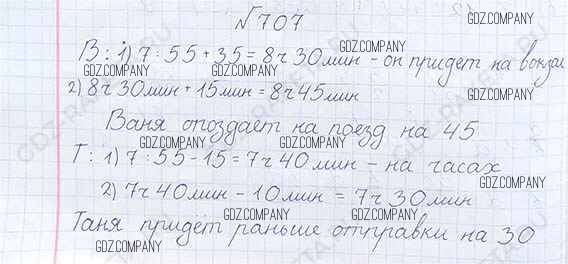 №707
В: 1) 7:55 + 35 = 8ч 30мин – он придет на вокзал
2) 8ч 30мин + 15мин = 8ч 45мин
Ваня опоздает на поезд на 45
Т: 1) 7:55 – 15 = 7ч 40 мин – на часах
2) 7ч 40мин – 10мин = 7ч 30мин
Таня придет раньше отправки на 30
GDZ.COMPANY
GDZ.COMPANY
GDZ.COMPANY
GDZ.COMPANY
GDZ.COMPANY
GDZ.COMPANY
GDZ.COMPANY
GDZ.COMPANY
GDZ.COMPANY
GDZ.COMPANY
GDZ.COMPANY